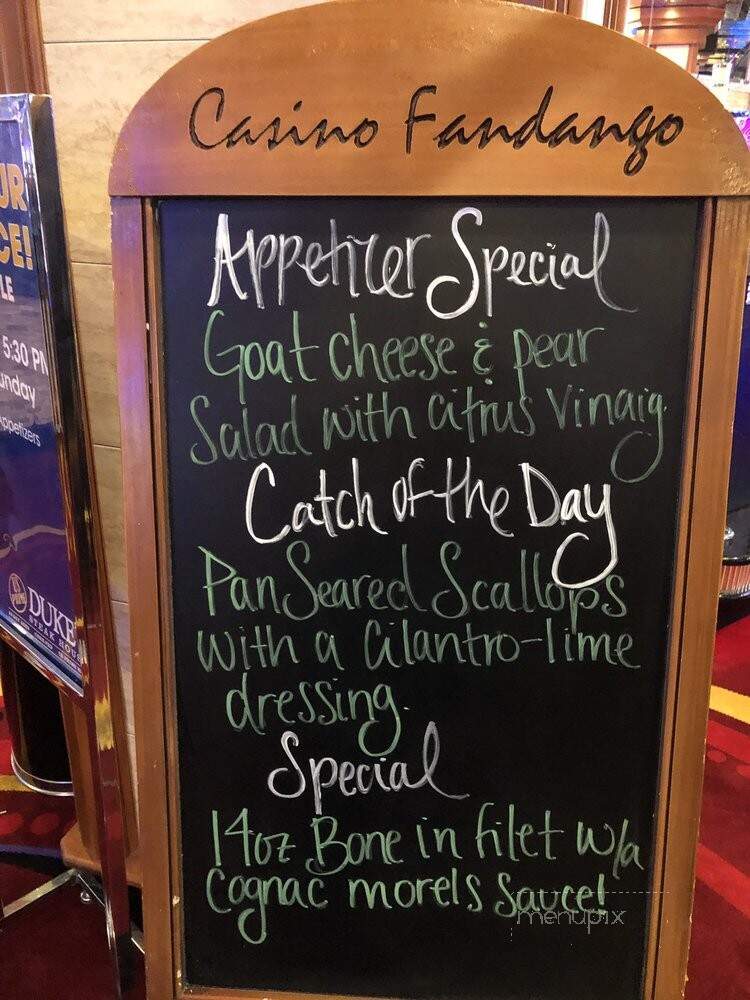 Casino Fandango
Appetizer Special
Goat cheese & pear
Salad with citrus Vinaig.
Catch of the Day
Pan Seared Scallops
with a cilantro-lime
dressing.
Special
14oz Bone in filet w/a
Cognac morels Sauce!
menupix
UR
CE!
LE
5:30 PM
unday
ppetizers
DUKE
STEAK HOU